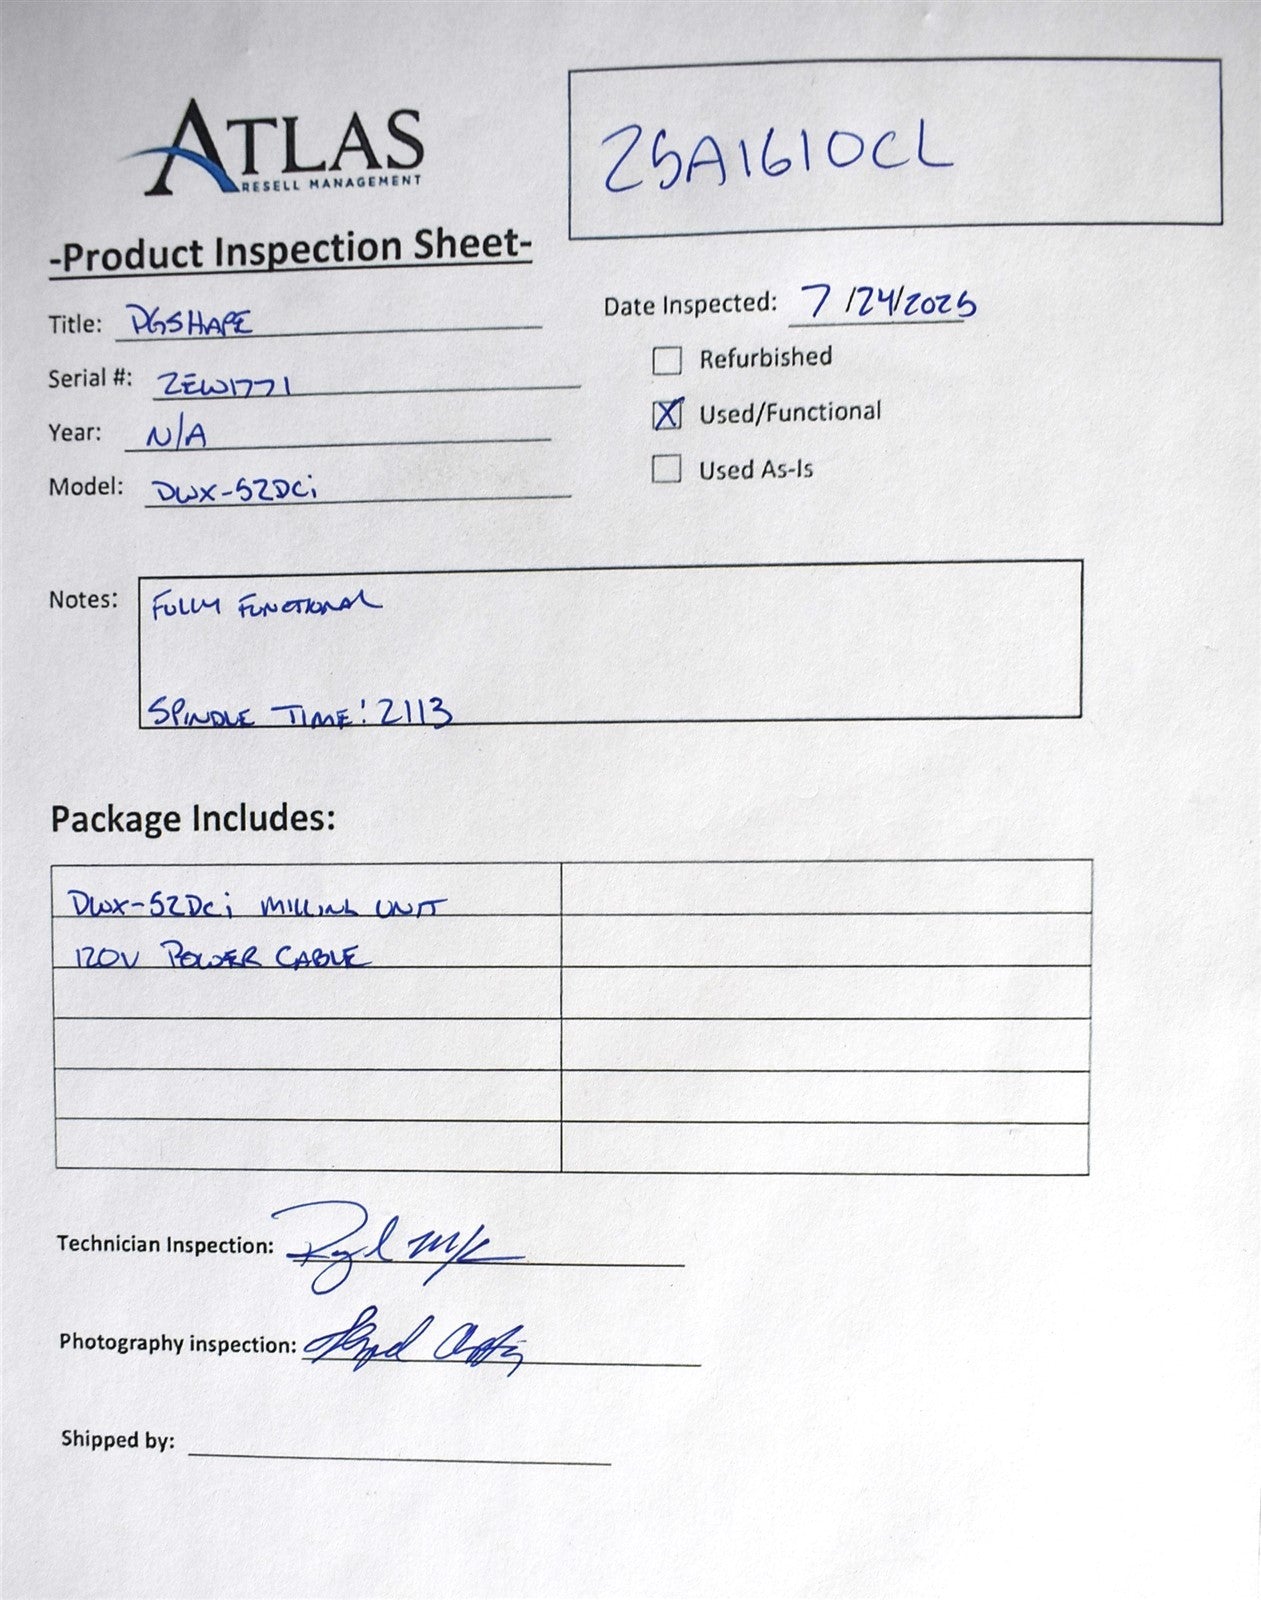 ATLAS
RESELL MANAGEMENT
25A1610CL
-Product Inspection Sheet-
Title: DGSHAPE
Date Inspected: 7/24/2025
Refurbished
Serial #: ZEW1771
X Used/Functional
Year: N/A
Used As-Is
Model: DWX-52DCi
Notes: FULLY FUNCTIONAL
SPINDLE TIME: 2113
Package Includes:
DWX-52DCi MILLING UNIT
120V POWER CABLE
Technician Inspection:
Photography inspection:
Shipped by: